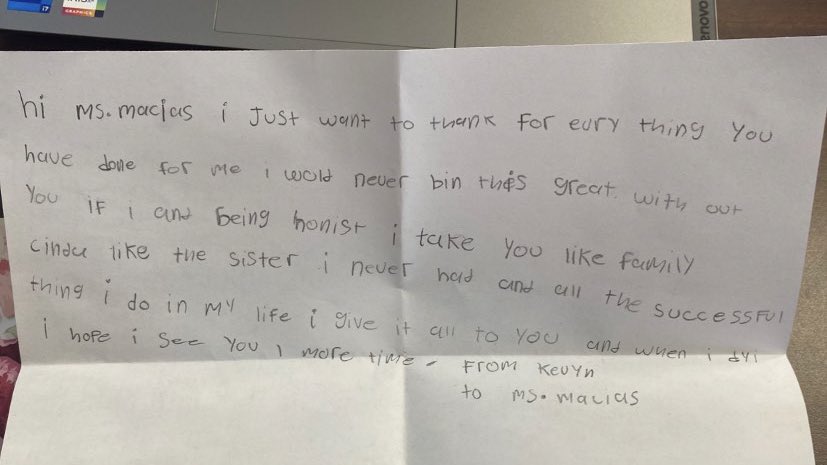 i7
GRAPHICS
enovo
hi Ms. macias i Just want to thank for eury thing You
have done for me i wold never bin this great. with out
You IF i and being honist i take you like family
cindu like the sister i never had and all the successful
thing i do in my life i give it all to you and when i dyi
i hope i see you 1 more time - From Kevyn
to Ms. Macias